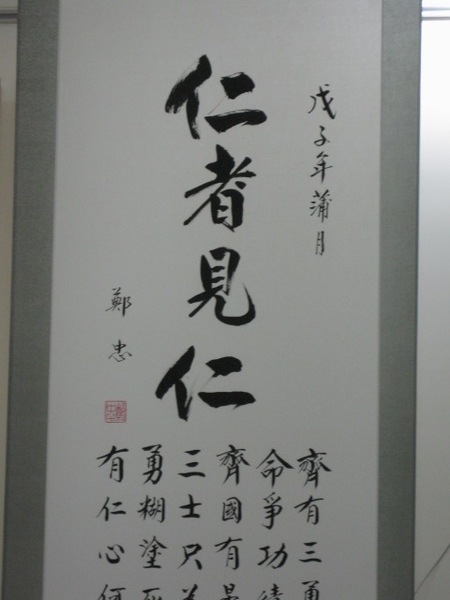 戊子年蒲月
仁者見仁
鄭忠
齊有三勇
命爭功
齊國有
三士只
勇糊塗
有仁心何